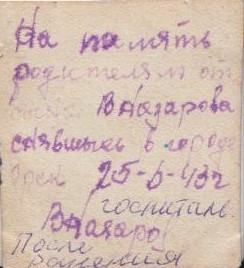 На память
родителям от
сына В Назарова
снявшысь в городе
Орск 25-6-43г
госпиталь
В Назаров
После
ранения